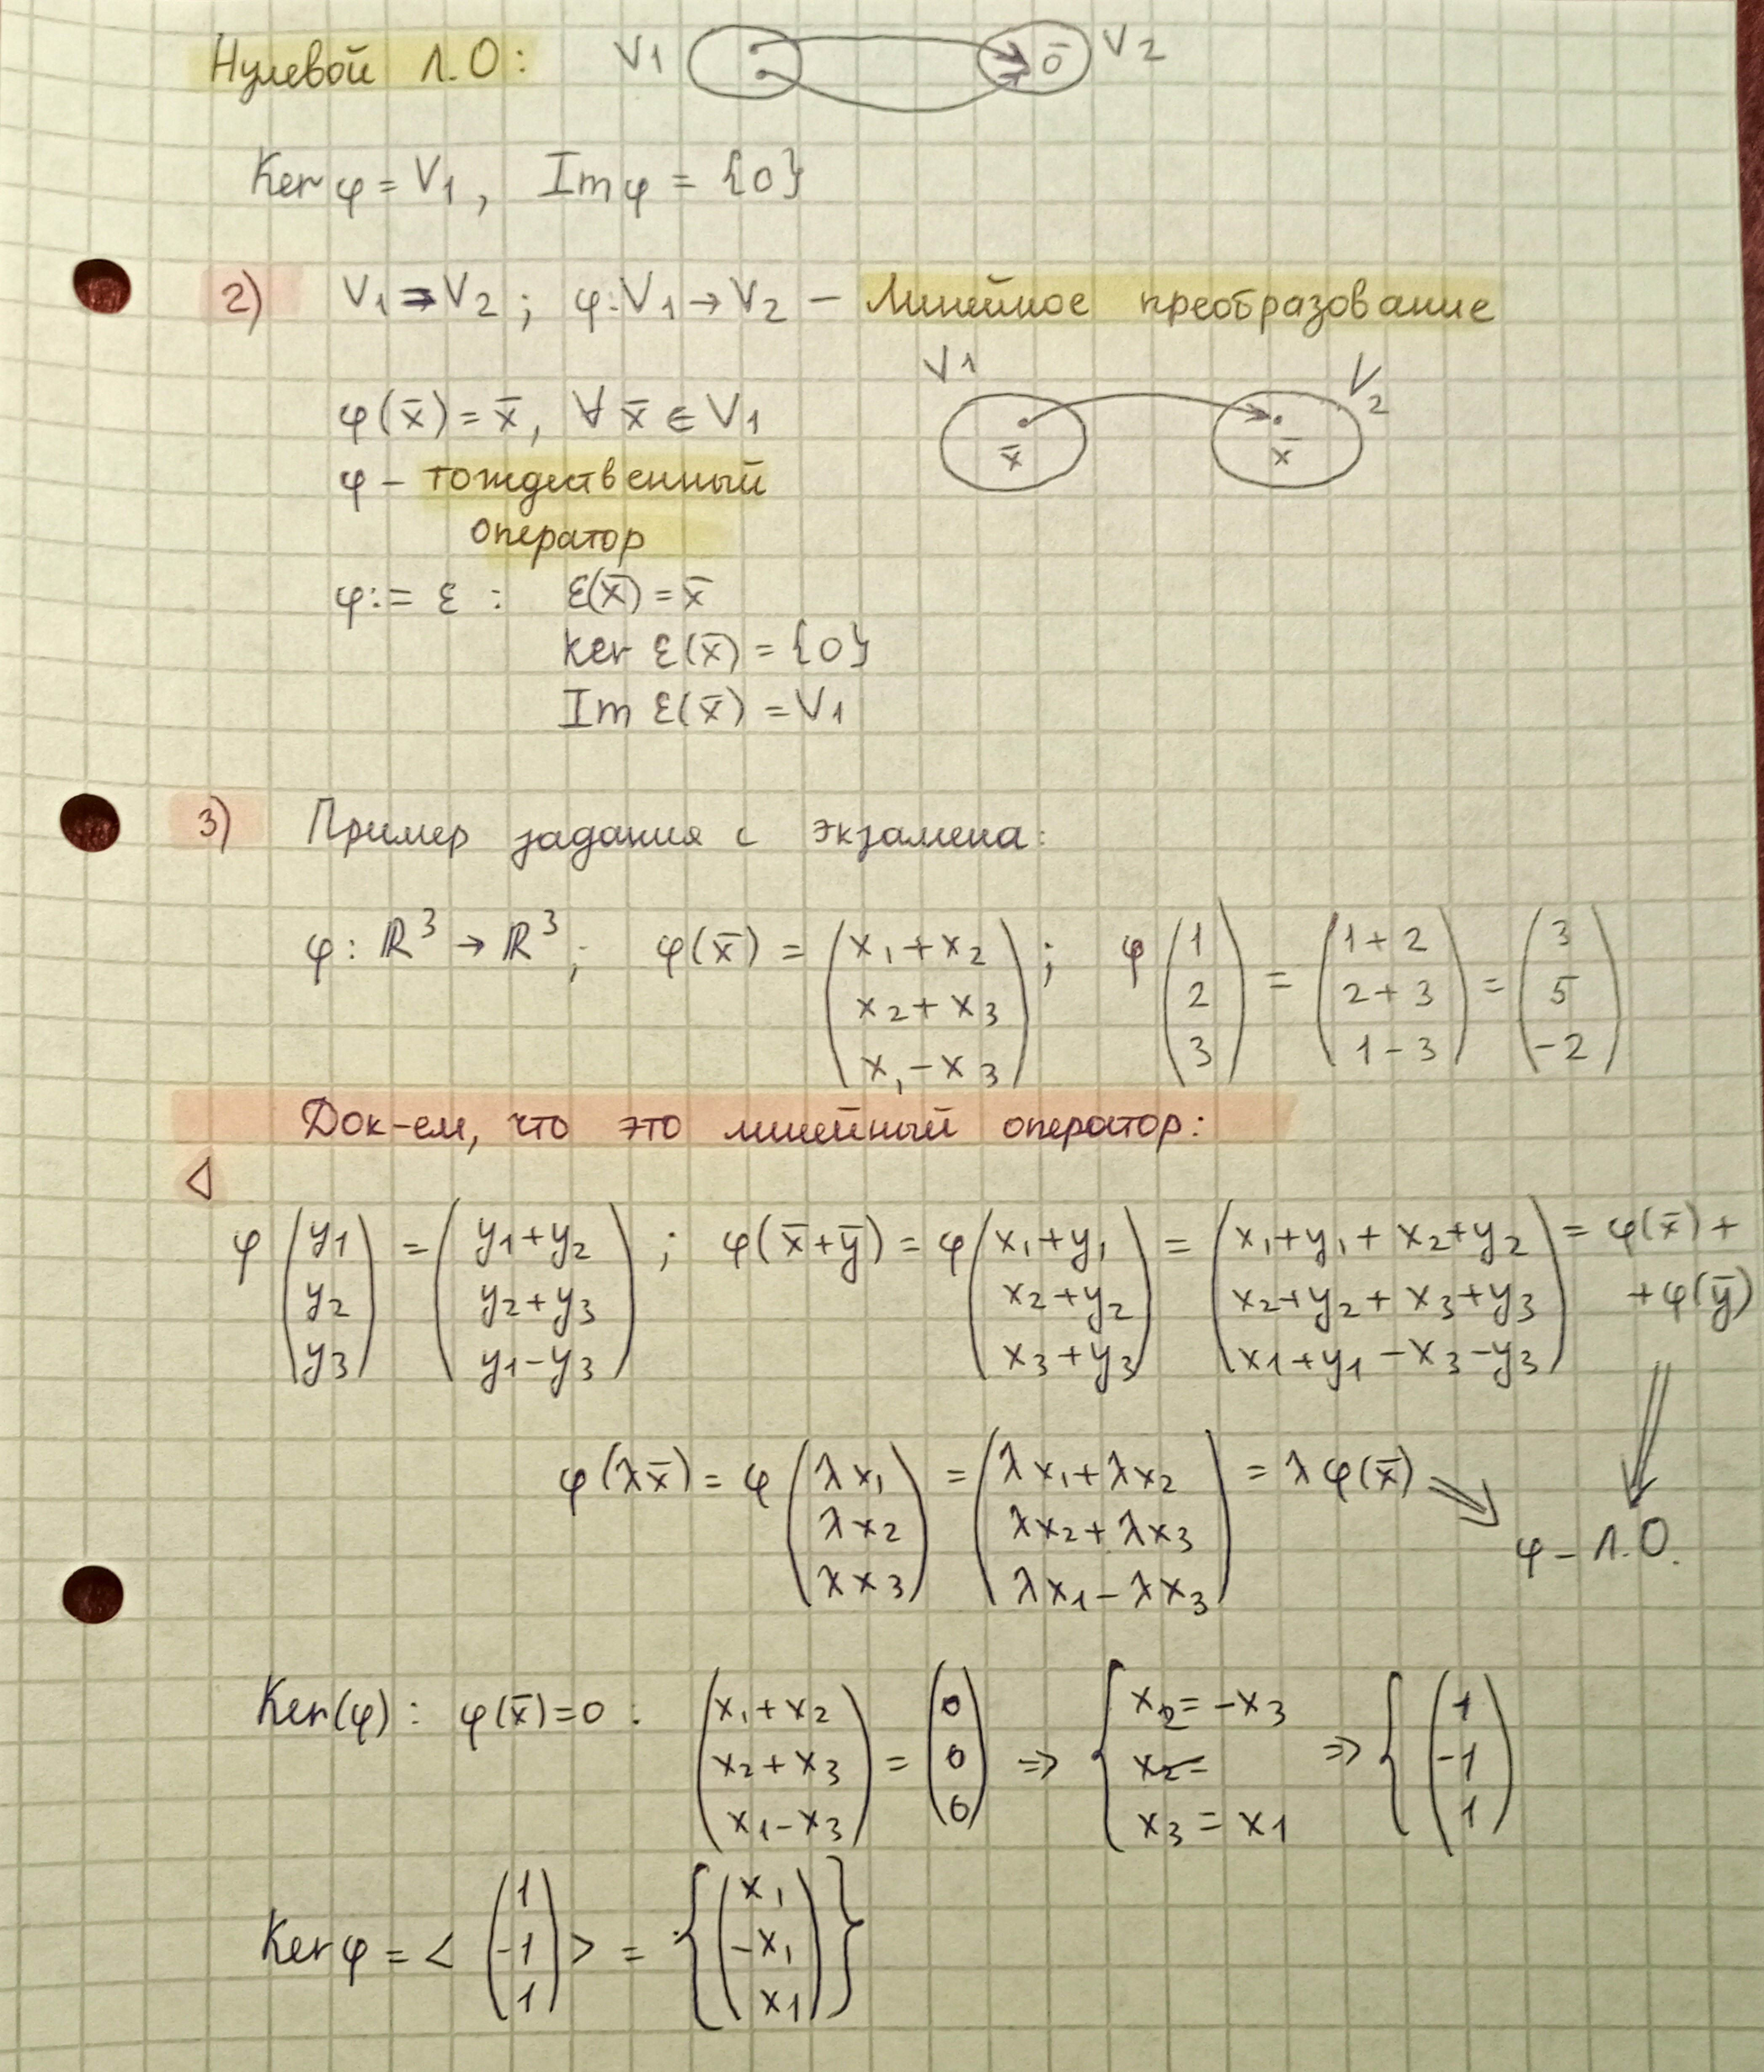 Нулевой Л.О: V1 ō V2
Ker φ = V1, Im φ = {0}
2) V1 = V2; φ: V1 → V2 — Линейное преобразование
V1 V2
φ(x̄) = x̄, ∀ x̄ ∈ V1
x̄ x̄
φ — тождественный
оператор
φ := ε : ε(x̄) = x̄
ker ε(x̄) = {0}
Im ε(x̄) = V1
3) Пример задания с экзамена:
φ: ℝ³ → ℝ³; φ(x̄) = (x1+x2; x2+x3; x1-x3); φ(1; 2; 3) = (1+2; 2+3; 1-3) = (3; 5; -2)
Док-ем, что это линейный оператор:
◁
φ(y1; y2; y3) = (y1+y2; y2+y3; y1-y3); φ(x̄+ȳ) = φ(x1+y1; x2+y2; x3+y3) = (x1+y1+x2+y2; x2+y2+x3+y3; x1+y1-x3-y3) = φ(x̄)+
+φ(ȳ)
φ(λx̄) = φ(λx1; λx2; λx3) = (λx1+λx2; λx2+λx3; λx1-λx3) = λφ(x̄) ⇒
φ — Л.О.
Ker(φ): φ(x̄)=0: (x1+x2; x2+x3; x1-x3) = (0; 0; 0) ⇒ { x2=-x3; x2=; x3=x1 ⇒ { (1; -1; 1)
Ker φ = < (1; -1; 1) > = { (x1; -x1; x1) }